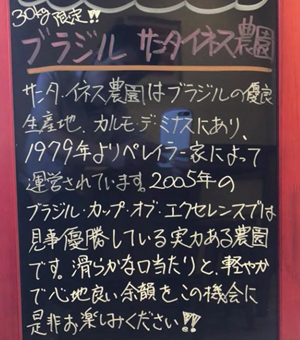 30kg限定!!
ブラジル サンタイネス農園
サンタ・イネス農園はブラジルの優良
生産地、カルモ・デ・ミナスにあり、
1979年よりペレイラー家によって
運営されています。2005年の
ブラジル・カップ・オブ・エクセレンスでは
見事優勝している実力ある農園
です。滑らかな口当たりと、軽やか
で心地良い余韻をこの機会に
是非お楽しみください!!